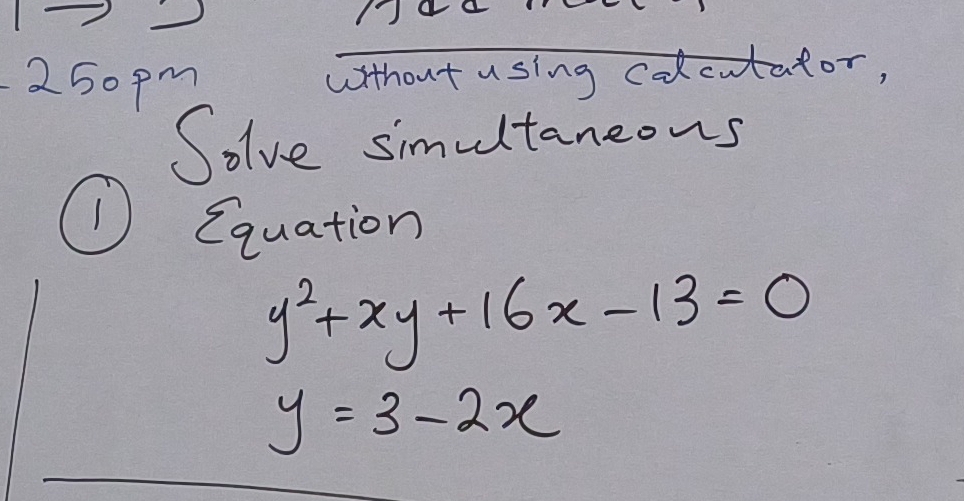 250pm
without using calculator,
Solve simultaneous
① Equation
y²+xy+16x-13=0
y=3-2x